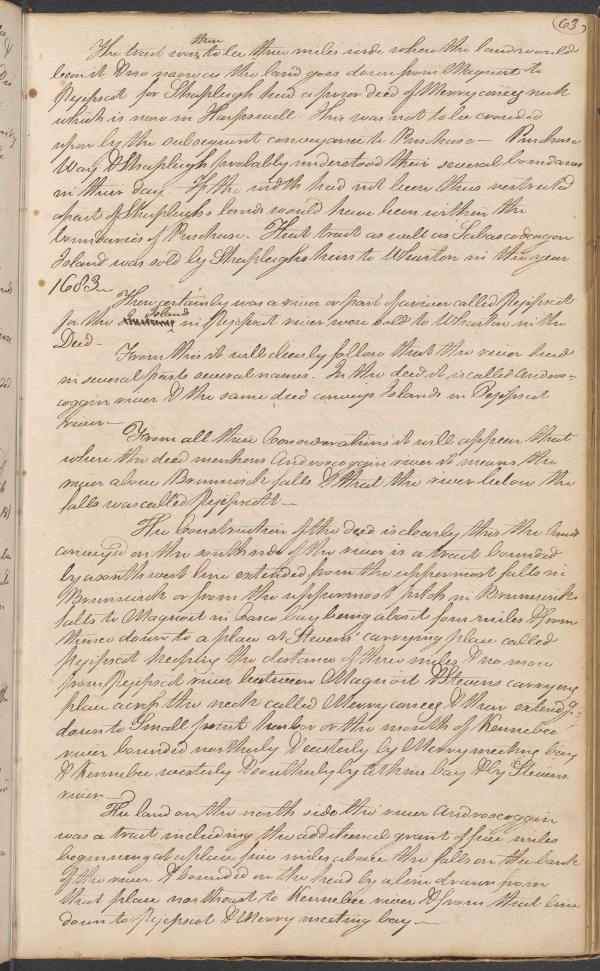 63
The tract was then to be three miles wide where the land would
bear it & no more as the land goes down from Maquoit to
Pejepscot for Shapleigh had a prior deed of Merryconeg neck
which is now in Harpswell. This was not to be crowded
upon by the subsequent conveyance to Purchase — Purchase
Way & Shapleigh probably understood their several boundaries
in their day. If the width had not been thus restricted
a part of Shapleighs lands would have been within the
boundaries of Purchase. That tract as well as Sabascodeagon
Island was sold by Shapleighs heirs to Wharton in the year
1683 —
There certainly was a river or part of a river called Pejepscot
for the Island in Pejepscot river were sold to Wharton in the
Deed —
From this it will clearly follow that the river had
in several parts several names. In the deed it is called Andros-
coggin river & the same deed conveys Islands in Pejepscot
river —
From all these Considerations it will appear that
where the deed mentions Androscoggin river it means the
river above Brunswick falls & that the river below the
falls was called Pejepscott —
The Construction of the deed is clearly this the lands
convey'd on the south side of the river is a tract bounded
by a south west line extended from the uppermost falls in
Brunswick or from the uppermost pitch in Brunswick
falls to Maquoit in Casco bay being about four miles & from
thence down to a place at Stevens' carrying place called
Pejepscot keeping the distance of three miles & no more
from Pejepscot river between Maquoit & Stevens carrying
place across the neck called Merryconeeg & then extendg.
down to Small point harbor or the mouth of Kennebec
river bounded northerly & easterly by Merrymeeting bay
& Kennebec westerly & southerly by Atkins bay & by Stevens
river —
The land on the north side the river Androscoggin
was a tract including the additional grant of five miles
beginning at a place five miles above the falls on the bank
of the river & bounded on the head by a line drawn from
that place northeast to Kennebec river & from that line
down to Pejepscot & Merry meeting bay —